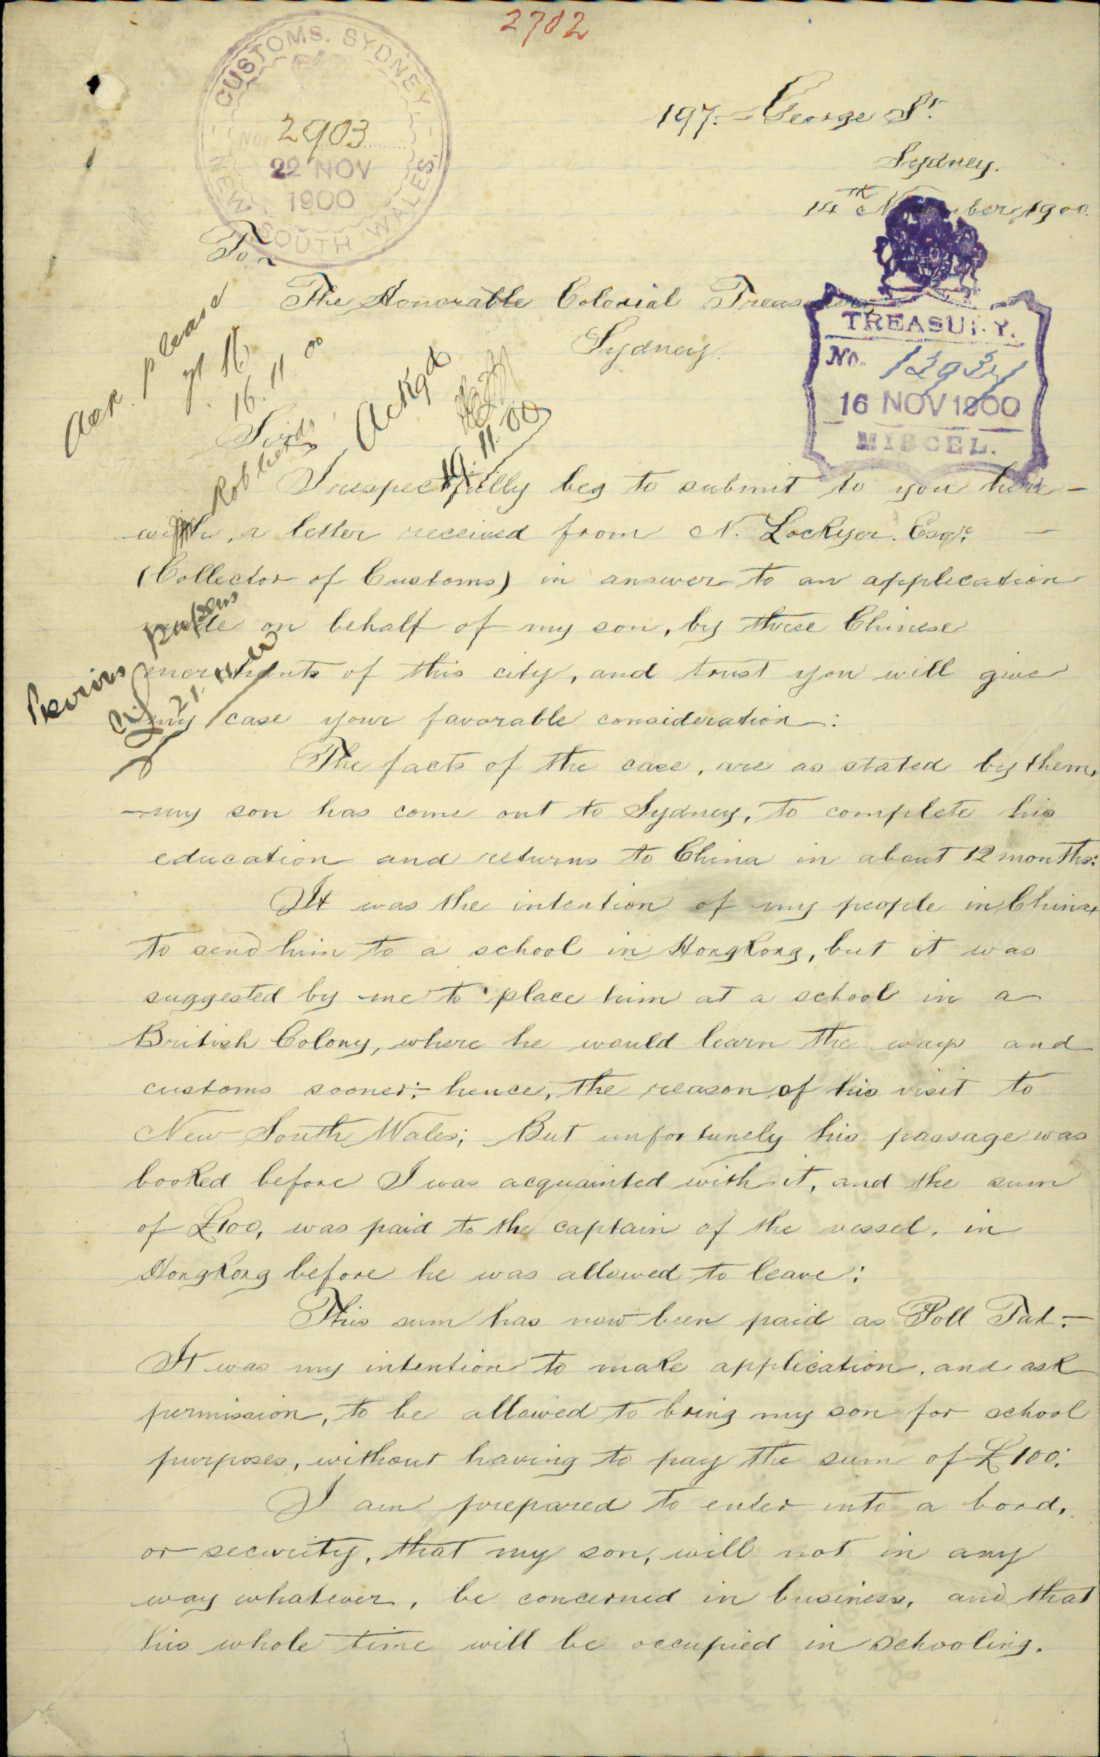 2702
CUSTOMS. SYDNEY.
NEW SOUTH WALES.
No. 2903
22 NOV
1900
197. George St.
Sydney.
14th November, 1900.
To
The Honorable Colonial Treasurer,
Sydney.
TREASURY.
No.
16 NOV 1900
MISCEL.
Ack. please
16.11.00
Ackgd
19.11.00
Sir,
I respectfully beg to submit to you here-
with, a letter received from N. Lockyer. Esqre. —
(Collector of Customs) in answer to an application
made on behalf of my son, by three Chinese
merchants of this city, and trust you will give
my case your favorable consideration:
Previous papers
21.11.00
The facts of the case, are as stated by them,
my son has come out to Sydney, to complete his
education and returns to China in about 12 months:
It was the intention of my people in China,
to send him to a school in HongKong, but it was
suggested by me to place him at a school in a
British Colony, where he would learn the ways and
customs sooner:- hence, the reason of his visit to
New South Wales; But unfortunely his passage was
booked before I was acquainted with it, and the sum
of £100, was paid to the captain of the vessel, in
HongKong before he was allowed to leave:
This sum has now been paid as Poll Tax:-
It was my intention to make application, and ask
permission, to be allowed to bring my son for school
purposes, without having to pay the sum of £100:
I am prepared to enter into a bond,
or security, that my son, will not in any
way whatever, be concerned in business, and that
his whole time will be occupied in schooling.